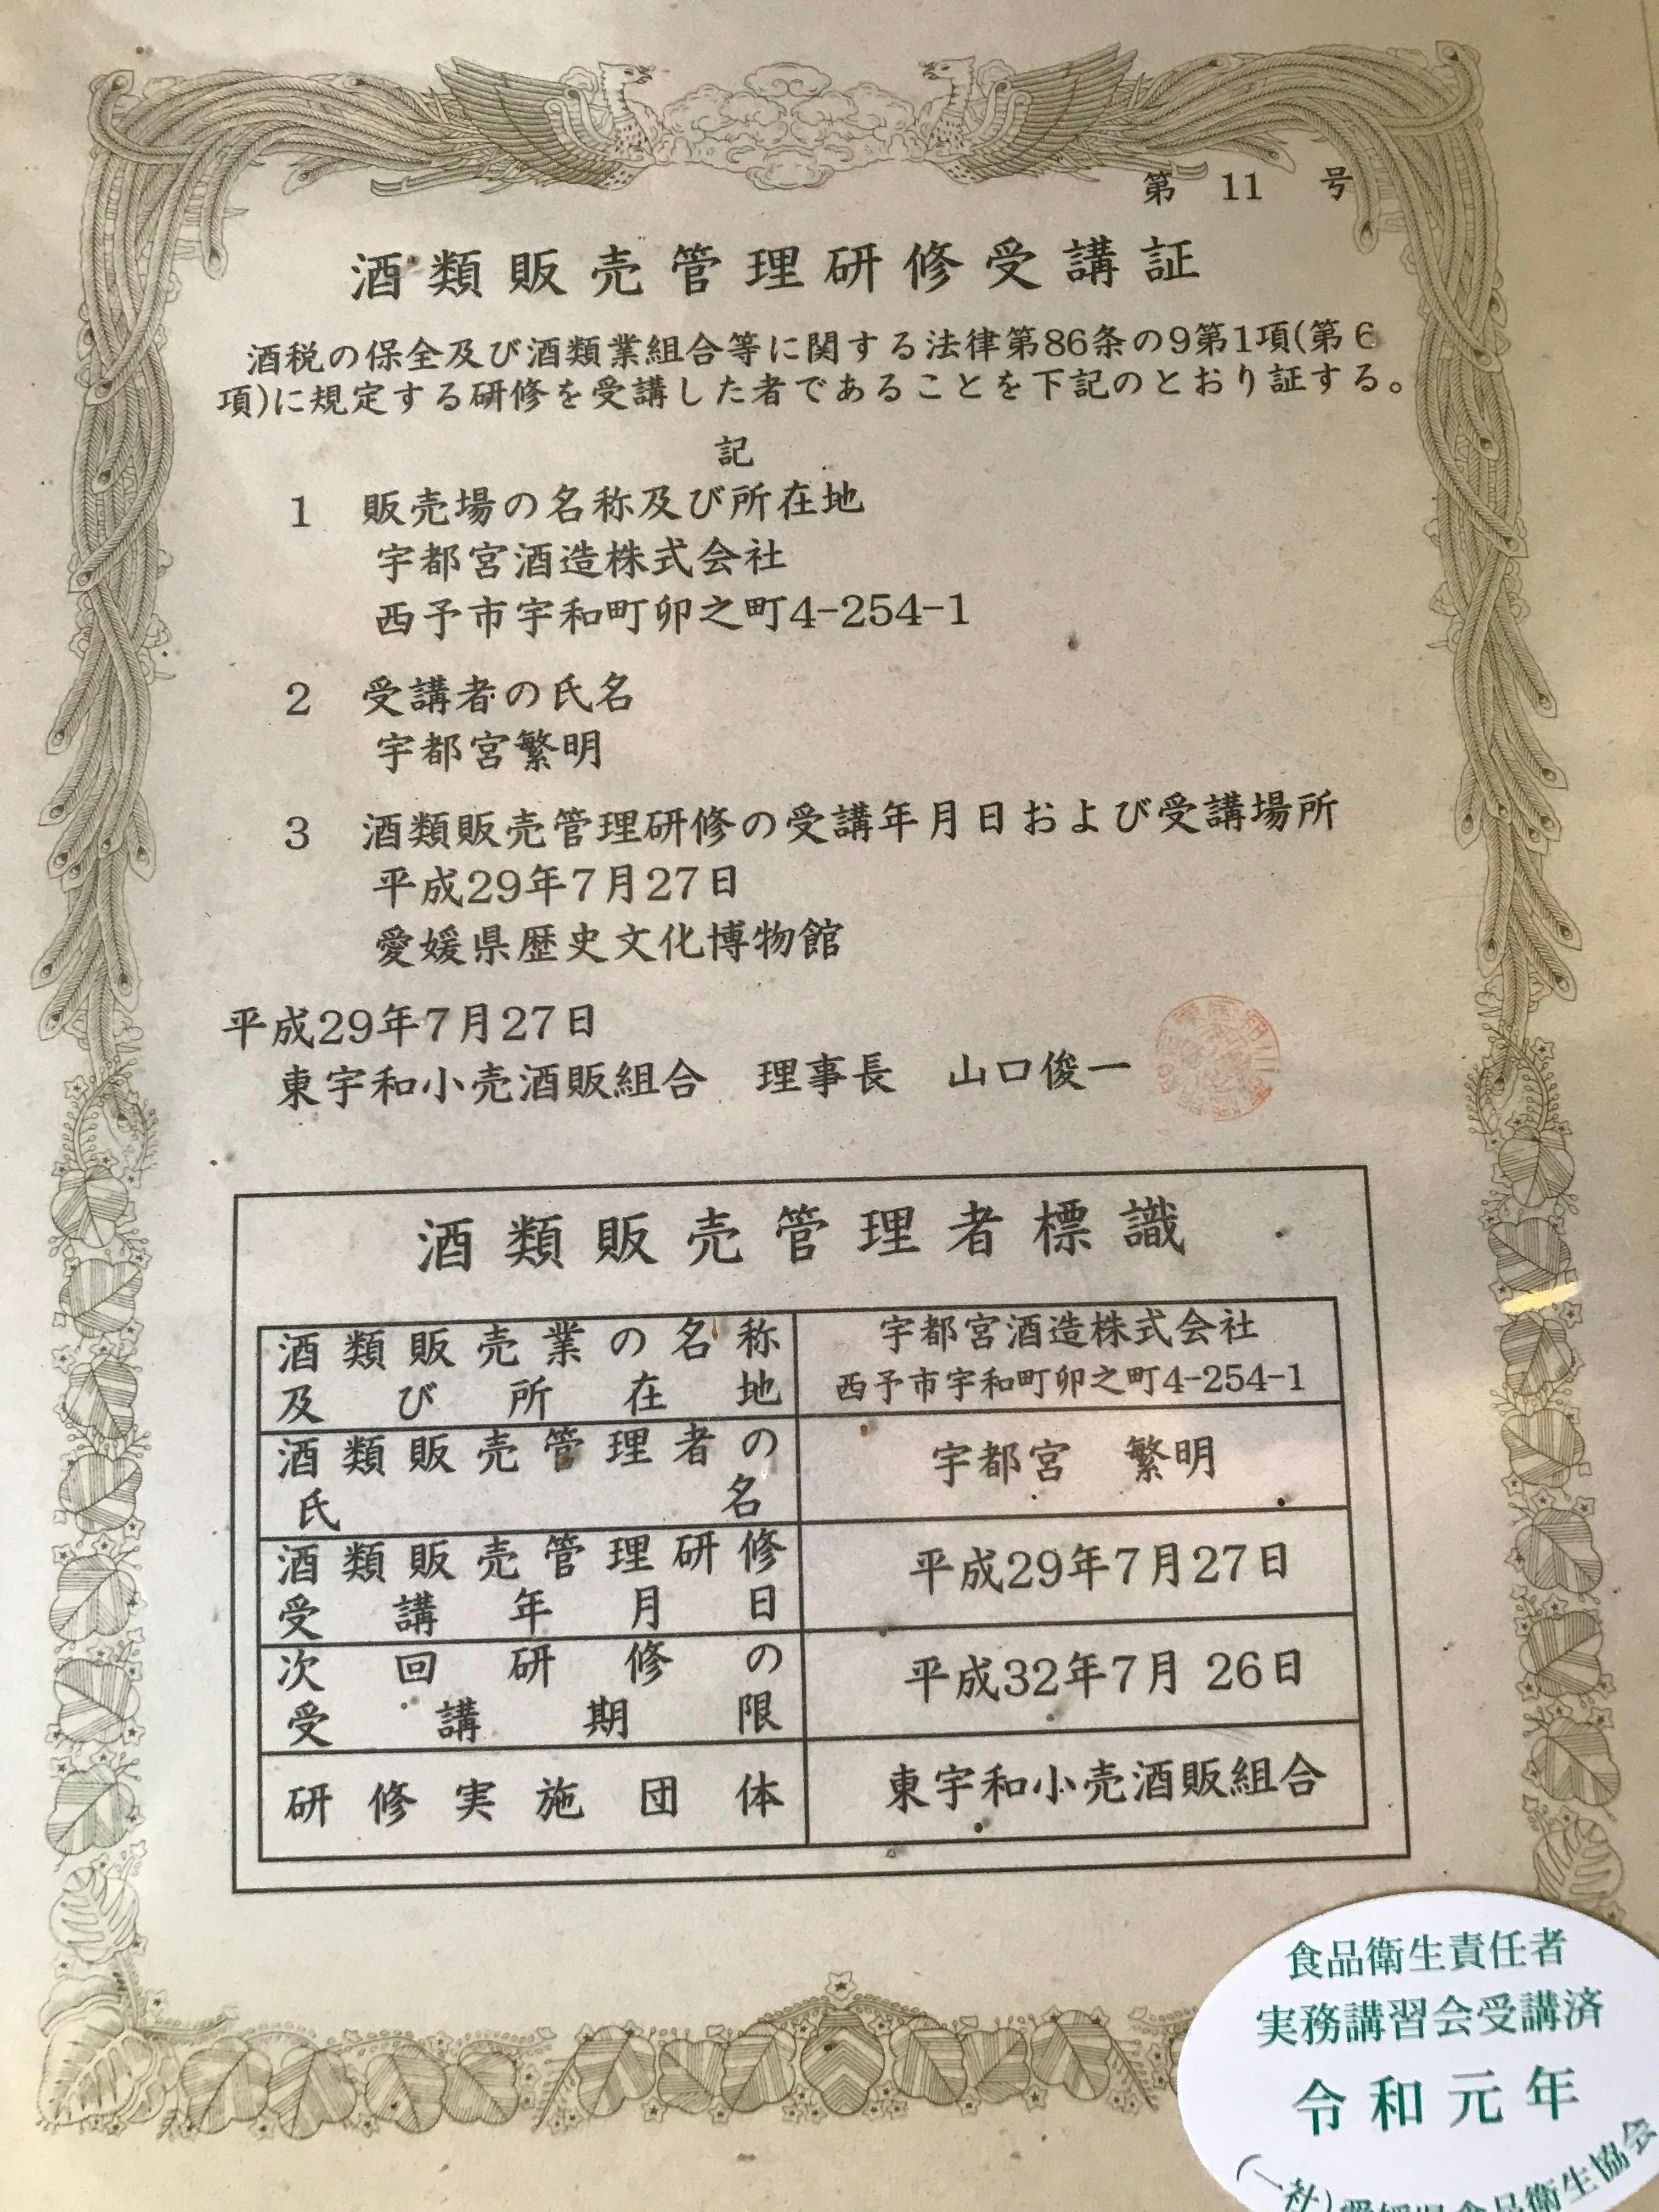 第 11 号
酒類販売管理研修受講証
酒税の保全及び酒類業組合等に関する法律第86条の9第1項(第6
項)に規定する研修を受講した者であることを下記のとおり証する。
記
1 販売場の名称及び所在地
宇都宮酒造株式会社
西予市宇和町卯之町4-254-1
2 受講者の氏名
宇都宮繁明
3 酒類販売管理研修の受講年月日および受講場所
平成29年7月27日
愛媛県歴史文化博物館
平成29年7月27日
東宇和小売酒販組合 理事長 山口俊一
酒類販売管理者標識
酒類販売業の名称
及び所在地
宇都宮酒造株式会社
西予市宇和町卯之町4-254-1
酒類販売管理者の
氏名
宇都宮 繁明
酒類販売管理研修
受講年月日
平成29年7月27日
次回研修の
受講期限
平成32年7月 26日
研修実施団体
東宇和小売酒販組合
食品衛生責任者
実務講習会受講済
令和元年
(一社)愛媛県食品衛生協会